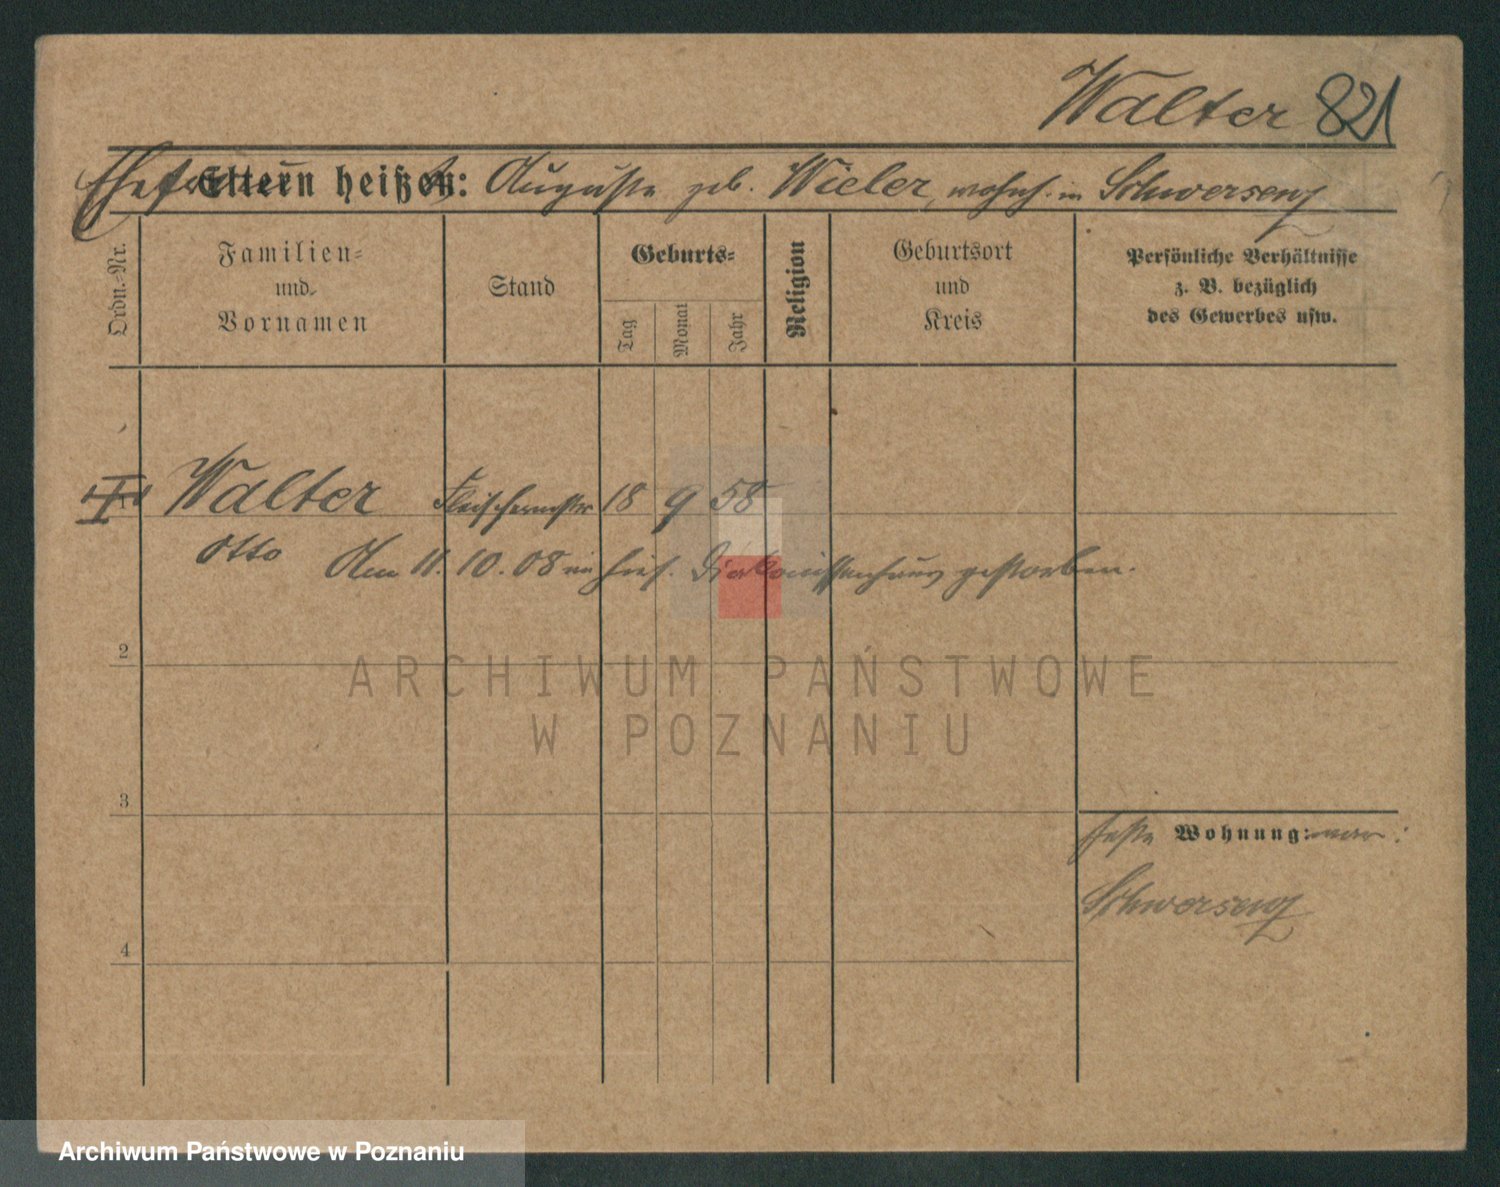 Walter 821
Ehefrau Eltern heißen: Auguste geb. Wieler, wohnh. in Schwersenz
Ordn.-Nr.
Familien-
und
Vornamen
Stand
Geburts-
Tag
Monat
Jahr
Religion
Geburtsort
und
Kreis
Persönliche Verhältnisse
z. B. bezüglich
des Gewerbes usw.
Walter Fleischermstr 18 9 58
Otto Am 11. 10. 08 im hies. Diakonissenhaus gestorben.
2
ARCHIWUM PAŃSTWOWE
W POZNANIU
3
feste Wohnung: war:
Schwersenz
4
Archiwum Państwowe w Poznaniu